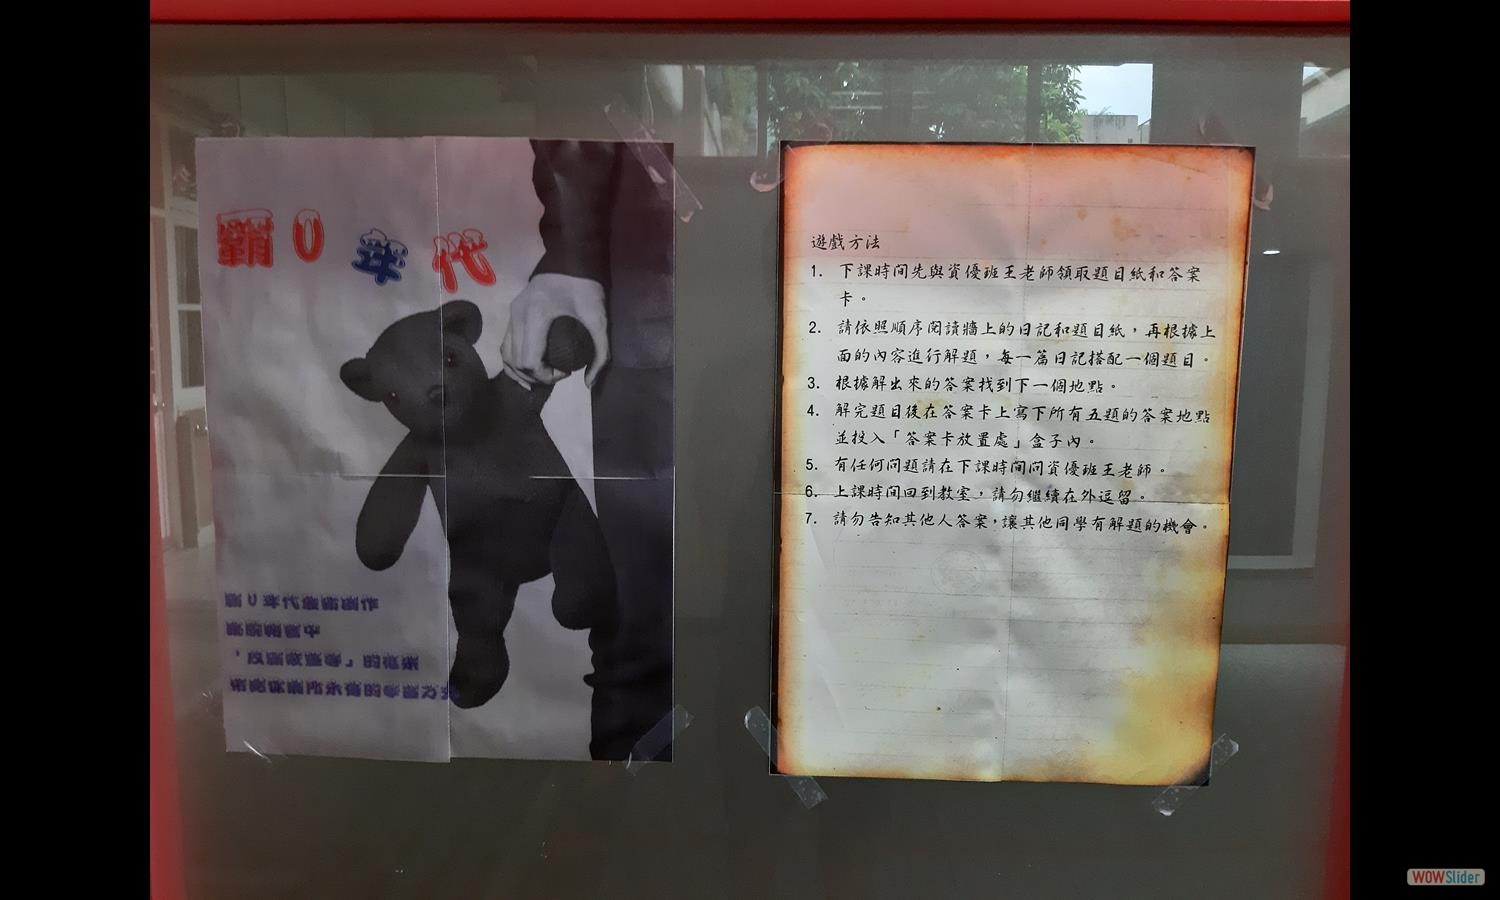 霸0年代
霸0年代
遊戲方法
1. 下課時間先與資優班王老師領取題目紙和答案
卡。
2. 請依照順序閱讀牆上的日記和題目紙，再根據上
面的內容進行解題，每一篇日記搭配一個題目。
3. 根據解出來的答案找到下一個地點。
4. 解完題目後在答案卡上寫下所有五題的答案地點
並投入「答案卡放置處」盒子內。
5. 有任何問題請在下課時間問資優班王老師。
6. 上課時間回到教室，請勿繼續在外逗留。
7. 請勿告知其他人答案，讓其他同學有解題的機會。
WOWSlider